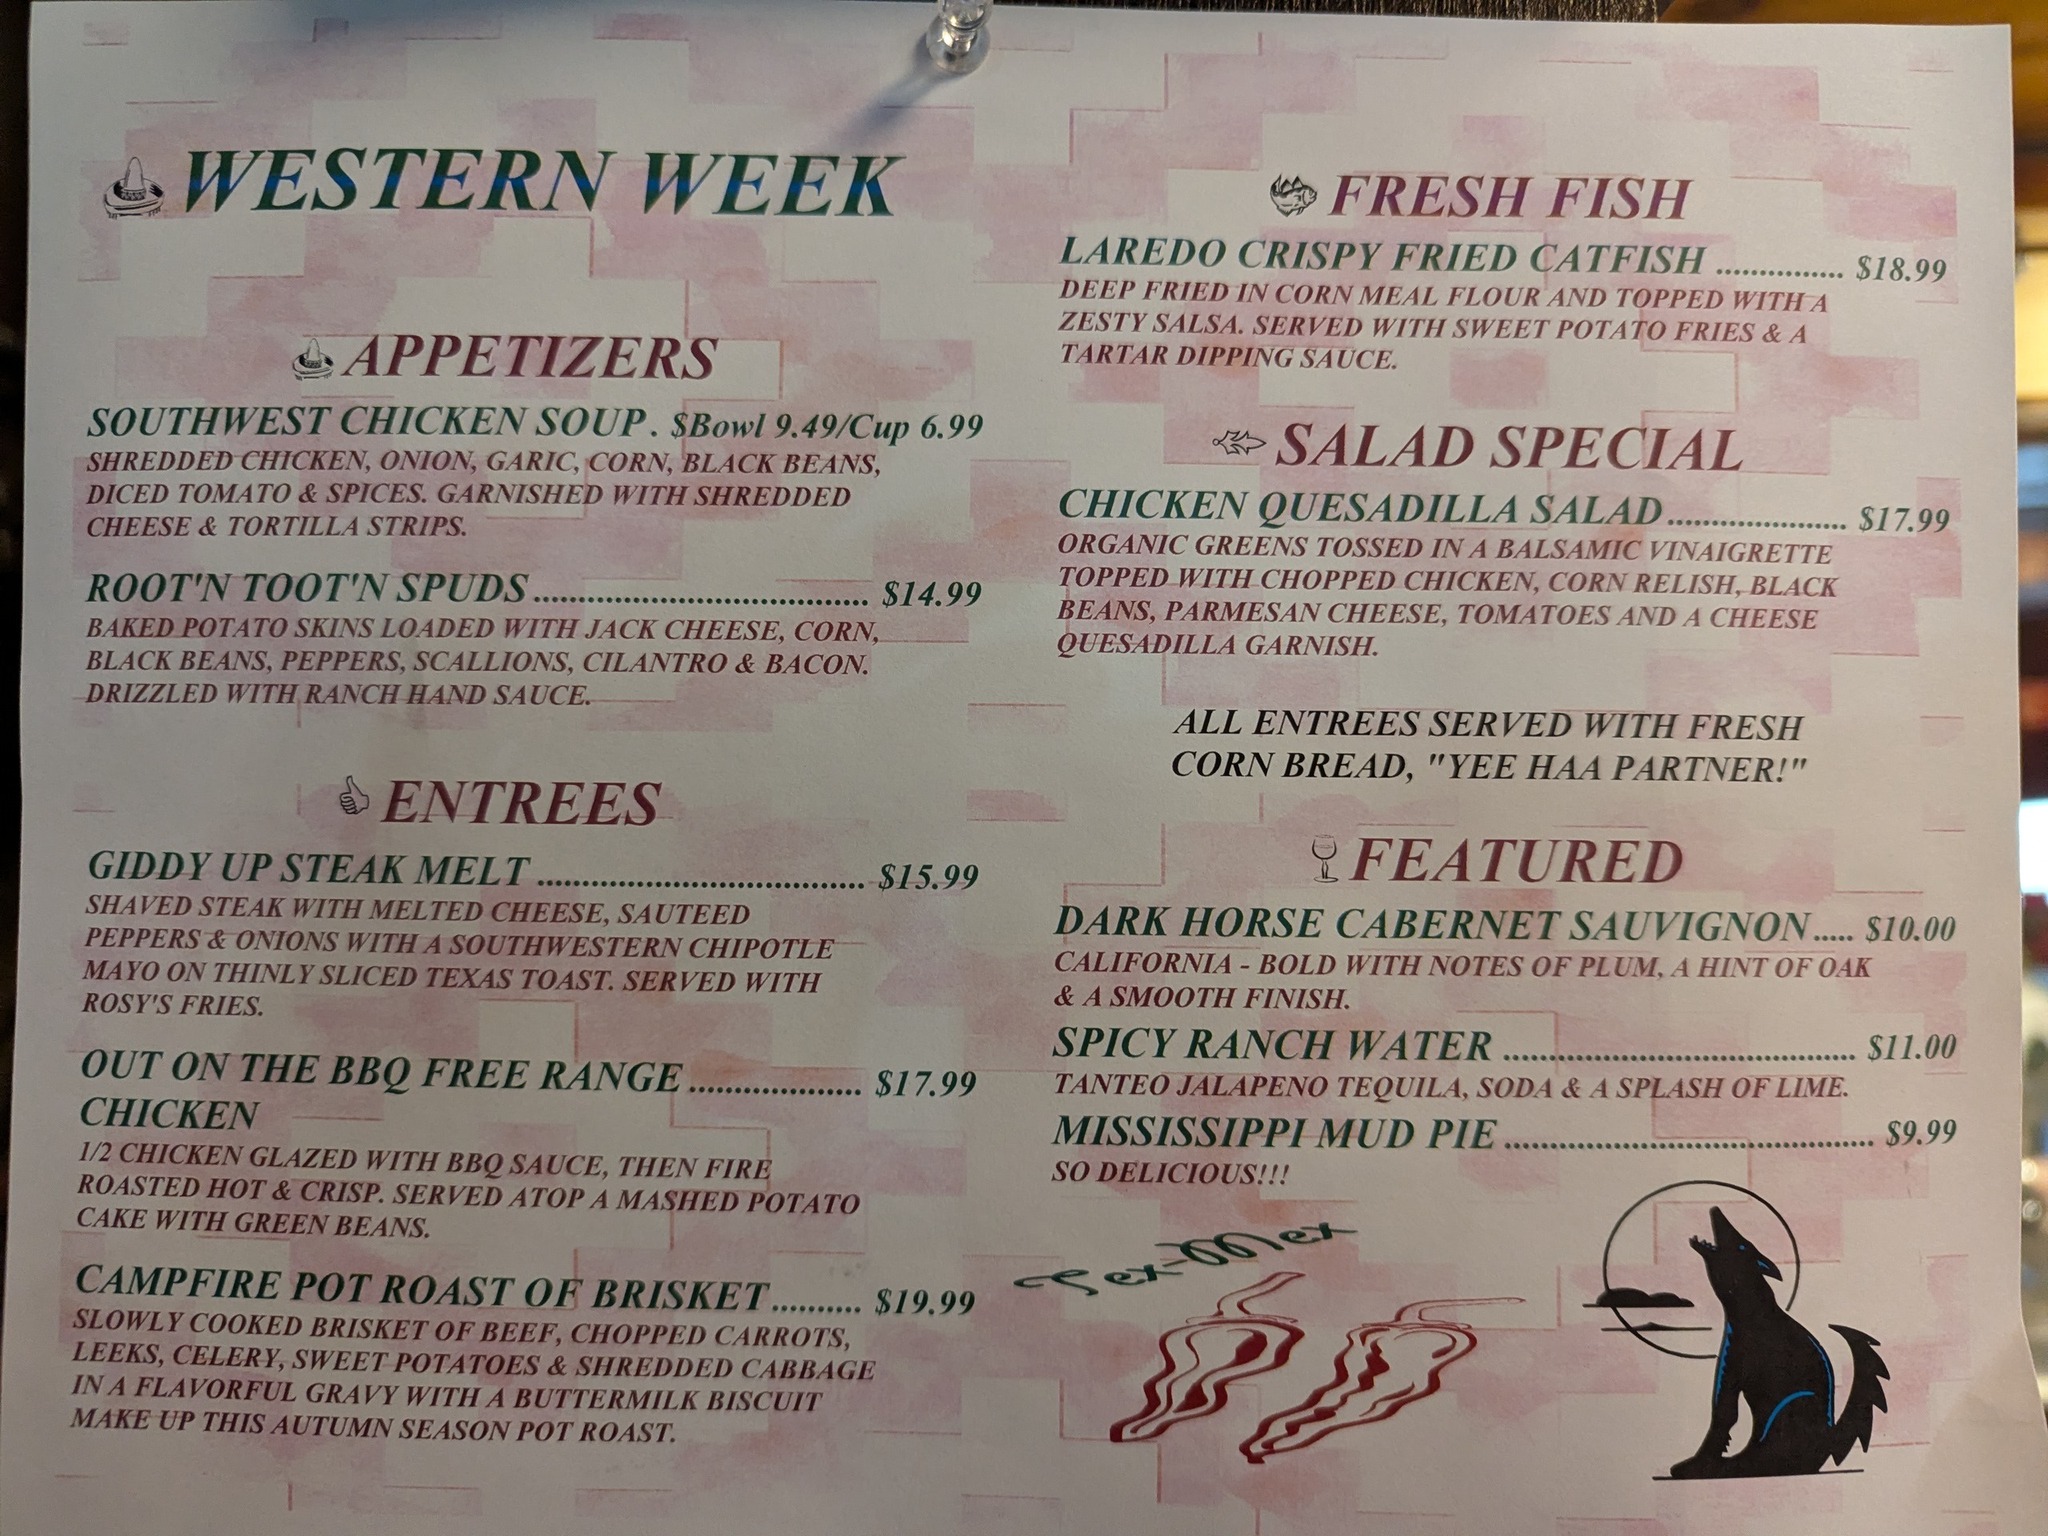 WESTERN WEEK
APPETIZERS
SOUTHWEST CHICKEN SOUP. $Bowl 9.49/Cup 6.99
SHREDDED CHICKEN, ONION, GARIC, CORN, BLACK BEANS,
DICED TOMATO & SPICES. GARNISHED WITH SHREDDED
CHEESE & TORTILLA STRIPS.
ROOT'N TOOT'N SPUDS ...................................... $14.99
BAKED POTATO SKINS LOADED WITH JACK CHEESE, CORN,
BLACK BEANS, PEPPERS, SCALLIONS, CILANTRO & BACON.
DRIZZLED WITH RANCH HAND SAUCE.
ENTREES
GIDDY UP STEAK MELT ..................................... $15.99
SHAVED STEAK WITH MELTED CHEESE, SAUTEED
PEPPERS & ONIONS WITH A SOUTHWESTERN CHIPOTLE
MAYO ON THINLY SLICED TEXAS TOAST. SERVED WITH
ROSY'S FRIES.
OUT ON THE BBQ FREE RANGE .................... $17.99
CHICKEN
1/2 CHICKEN GLAZED WITH BBQ SAUCE, THEN FIRE
ROASTED HOT & CRISP. SERVED ATOP A MASHED POTATO
CAKE WITH GREEN BEANS.
CAMPFIRE POT ROAST OF BRISKET.......... $19.99
SLOWLY COOKED BRISKET OF BEEF, CHOPPED CARROTS,
LEEKS, CELERY, SWEET POTATOES & SHREDDED CABBAGE
IN A FLAVORFUL GRAVY WITH A BUTTERMILK BISCUIT
MAKE UP THIS AUTUMN SEASON POT ROAST.
FRESH FISH
LAREDO CRISPY FRIED CATFISH ............... $18.99
DEEP FRIED IN CORN MEAL FLOUR AND TOPPED WITH A
ZESTY SALSA. SERVED WITH SWEET POTATO FRIES & A
TARTAR DIPPING SAUCE.
SALAD SPECIAL
CHICKEN QUESADILLA SALAD ..................... $17.99
ORGANIC GREENS TOSSED IN A BALSAMIC VINAIGRETTE
TOPPED WITH CHOPPED CHICKEN, CORN RELISH, BLACK
BEANS, PARMESAN CHEESE, TOMATOES AND A CHEESE
QUESADILLA GARNISH.
ALL ENTREES SERVED WITH FRESH
CORN BREAD, "YEE HAA PARTNER!"
FEATURED
DARK HORSE CABERNET SAUVIGNON ..... $10.00
CALIFORNIA - BOLD WITH NOTES OF PLUM, A HINT OF OAK
& A SMOOTH FINISH.
SPICY RANCH WATER ........................................ $11.00
TANTEO JALAPENO TEQUILA, SODA & A SPLASH OF LIME.
MISSISSIPPI MUD PIE .......................................... $9.99
SO DELICIOUS!!!
Tex-Mex